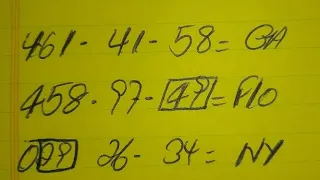 461- 41- 58= GA
458- 97- 49= Flo
009 26- 34= NY